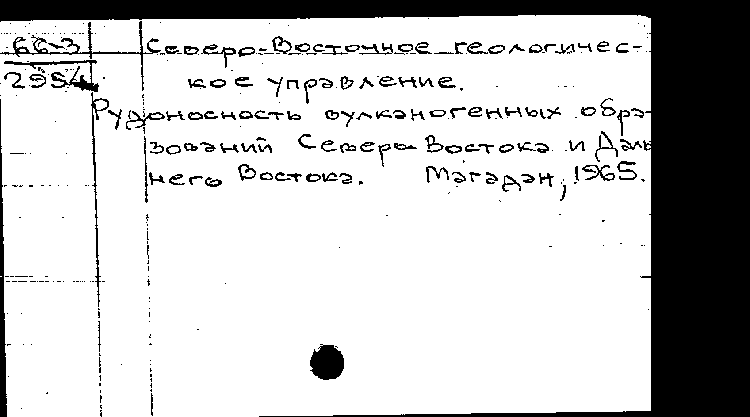 66-3
2954
Северо-Восточное геологичес-
кое управление.
Рудоносность вулканогенных обра-
зований Северо-Востока и Даль
него Востока. Магадан, 1965.